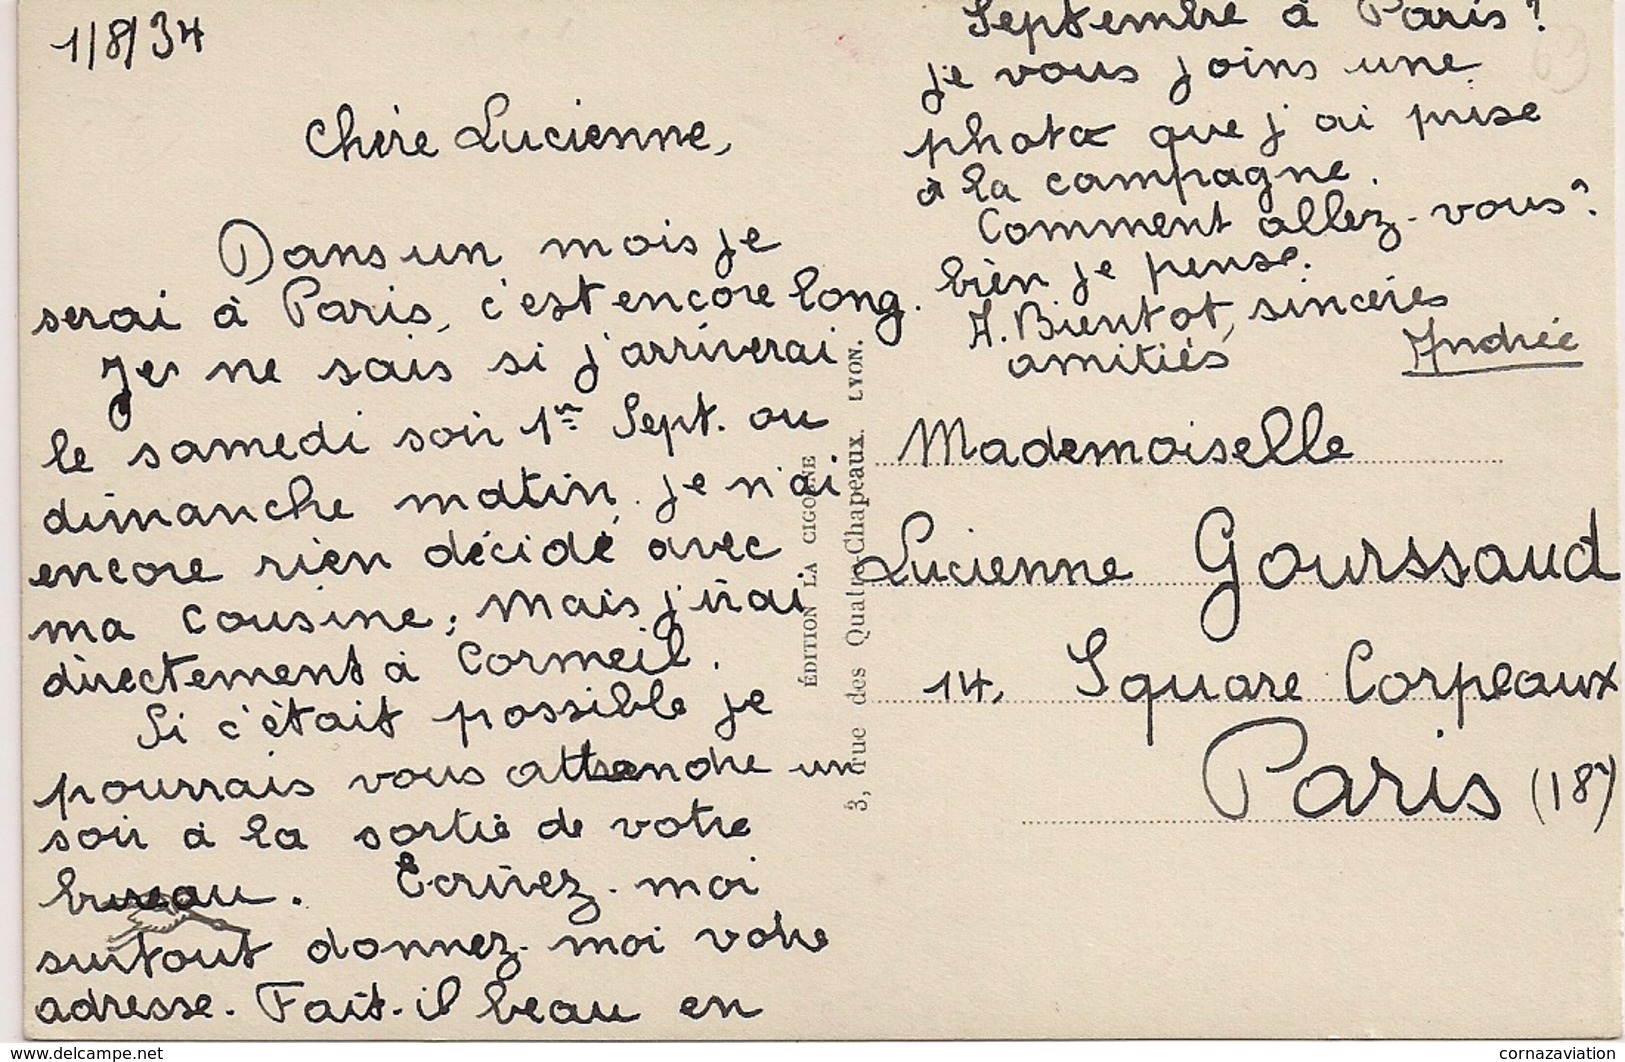 1/8/34
Chère Lucienne,
Dans un mois je
serai à Paris, c'est encore long.
Je ne sais si j'arriverai
le samedi soir 1er Sept. ou
dimanche matin. je n'ai
encore rien décidé avec
ma cousine; Mais j'irai
directement à Cormeil.
Si c'était possible je
pourrais vous attendre un
soir à la sortie de votre
bureau. Ecrivez-moi
surtout donnez-moi votre
adresse. Fait-il beau en
Septembre à Paris?
je vous joins une
photo que j'ai prise
à la campagne.
Comment allez-vous?
bien je pense.
A. Bientot, sincères
amitiés Andrée
ÉDITION LA CIGOGNE
3, rue des Quatre-Chapeaux. LYON.
Mademoiselle
Lucienne Goursaud
14, Square Carpeaux
Paris (18)
69
www.delcampe.net
cornazaviation